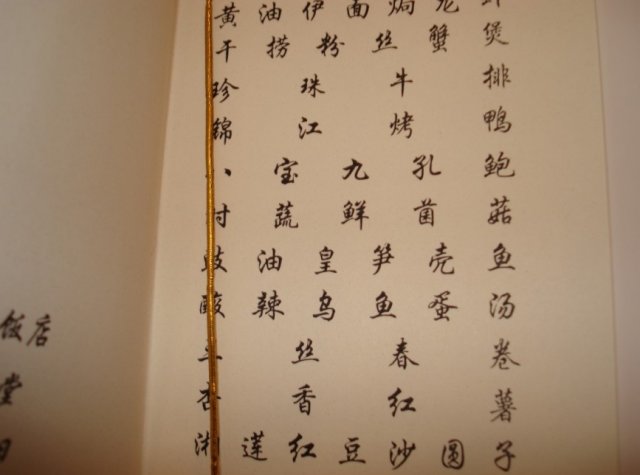 黄油伊面焗龙虾
干捞粉丝蟹煲
珍珠牛排
锦江烤鸭
宝九孔鲍
时蔬鲜菌菇
豉油皇笋壳鱼
酸辣乌鱼蛋汤
三丝春卷
杏香红薯
湘莲红豆沙圆子
饭店
堂